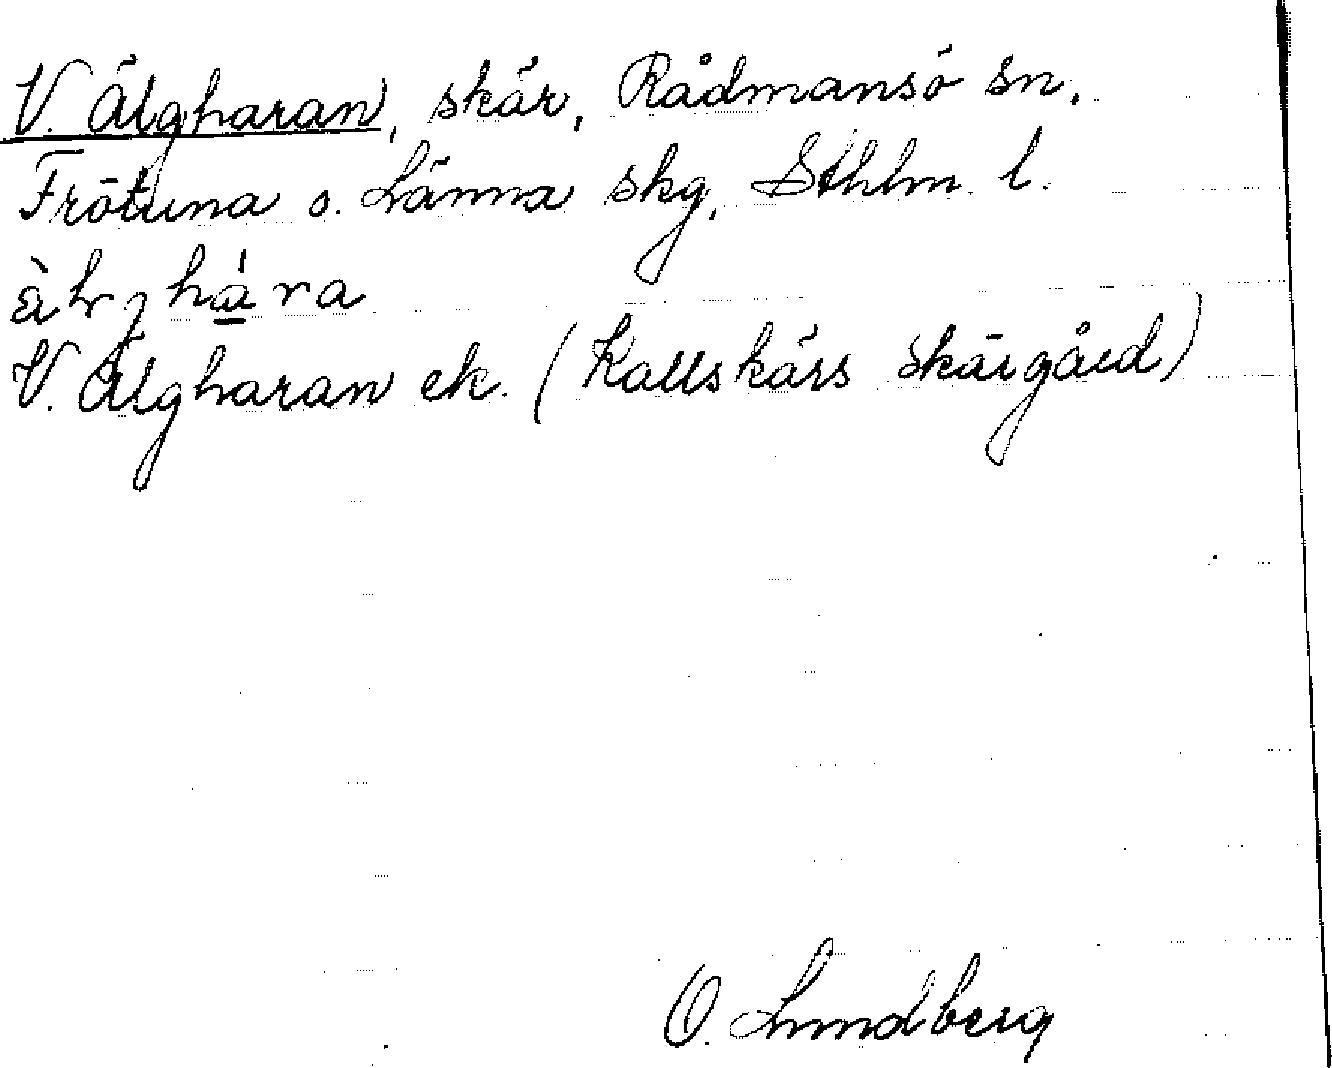 V. Älgharan, skär, Rådmansö sn,
Frötuna o. Länna skg, Sthlms l.
V. Älgharan ek. (Kallskärs skärgård)
O. Lundberg